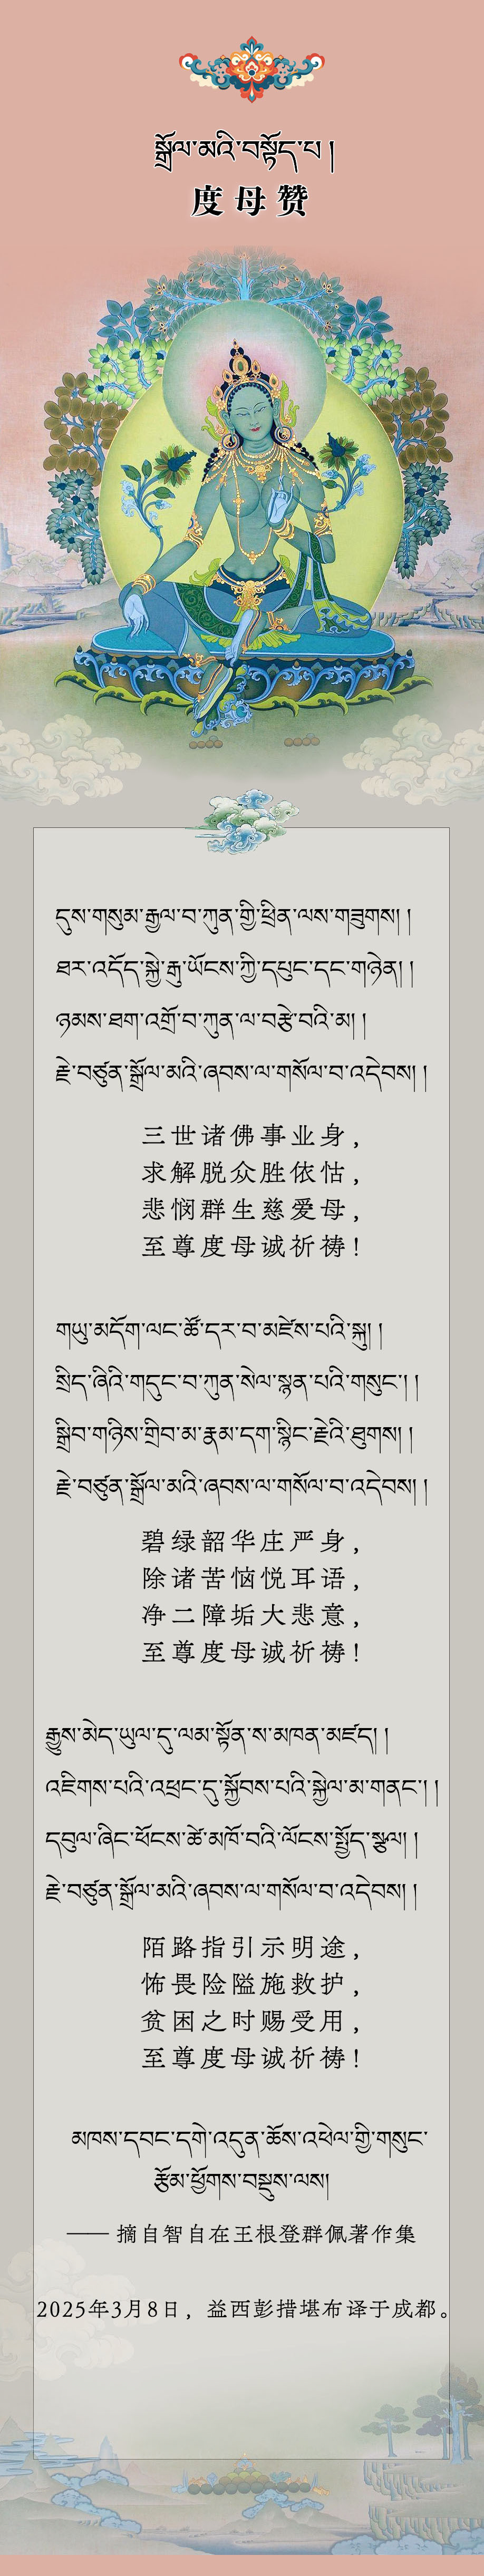 སྒྲོལ་མའི་བསྟོད་པ །
度母赞
དུས་གསུམ་རྒྱལ་བ་ཀུན་གྱི་ཕྲིན་ལས་གཟུགས། །
ཐར་འདོད་སྐྱེ་རྒུ་ཡོངས་ཀྱི་དཔུང་དང་གཉེན། །
ཉམས་ཐག་འགྲོ་བ་ཀུན་ལ་བརྩེ་བའི་མ། །
རྗེ་བཙུན་སྒྲོལ་མའི་ཞབས་ལ་གསོལ་བ་འདེབས། །
三世诸佛事业身，
求解脱众胜依怙，
悲悯群生慈爱母，
至尊度母诚祈祷！
གཡུ་མདོག་ལང་ཚོ་དར་བ་མཛེས་པའི་སྐུ། །
སྲིད་ཞིའི་གདུང་བ་ཀུན་སེལ་སྙན་པའི་གསུང་། །
སྒྲིབ་གཉིས་གྲིབ་མ་རྣམ་དག་སྙིང་རྗེའི་ཐུགས། །
རྗེ་བཙུན་སྒྲོལ་མའི་ཞབས་ལ་གསོལ་བ་འདེབས། །
碧绿韶华庄严身，
除诸苦恼悦耳语，
净二障垢大悲意，
至尊度母诚祈祷！
རྒྱུས་མེད་ཡུལ་དུ་ལམ་སྟོན་ས་མཁན་མཛད། །
འཇིགས་པའི་འཕྲང་དུ་སྐྱོབས་པའི་སྐྱེལ་མ་གནང་། །
དབུལ་ཞིང་ཕོངས་ཚེ་མཁོ་བའི་ལོངས་སྤྱོད་སྩལ། །
རྗེ་བཙུན་སྒྲོལ་མའི་ཞབས་ལ་གསོལ་བ་འདེབས། །
陌路指引示明途，
怖畏险隘施救护，
贫困之时赐受用，
至尊度母诚祈祷！
མཁས་དབང་དགེ་འདུན་ཆོས་འཕེལ་གྱི་གསུང་
རྩོམ་ཕྱོགས་བསྡུས་ལས།
—— 摘自智自在王根登群佩著作集
2025年3月8日，益西彭措堪布译于成都。